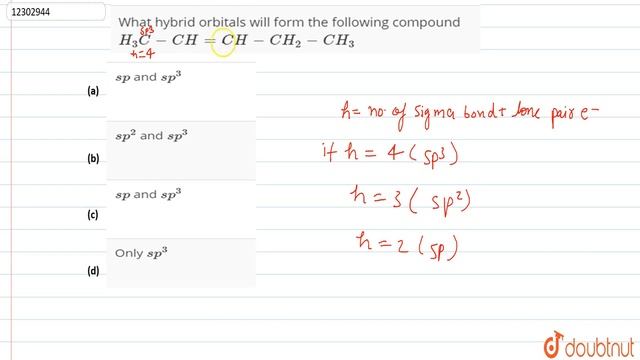 12302944
What hybrid orbitals will form the following compound
sp3
H₃C − CH = CH − CH₂ − CH₃
h=4
(a) sp and sp³
(b) sp² and sp³
(c) sp and sp³
(d) Only sp³
h= no. of sigma bond + lone pair e−
if h = 4 ( sp3)
h = 3 ( sp2)
h = 2 ( sp)
doubtnut